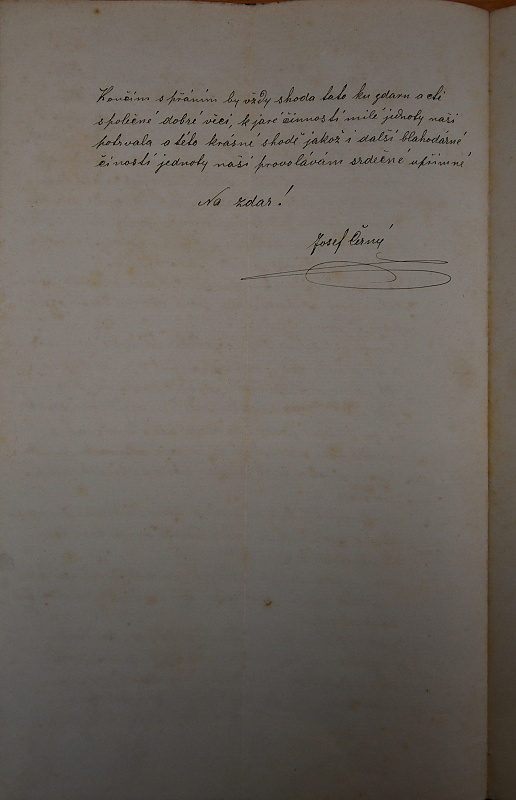 Končím s přáním by vždy shoda tato ku zdaru a cti
společné dobré věci, k jaré činnosti milé jednoty naší
potrvala a této krásné shodě jakož i další blahodárné
činosti jednoty naší provolávám srdečné upřímné
Na zdar!
Josef Černý